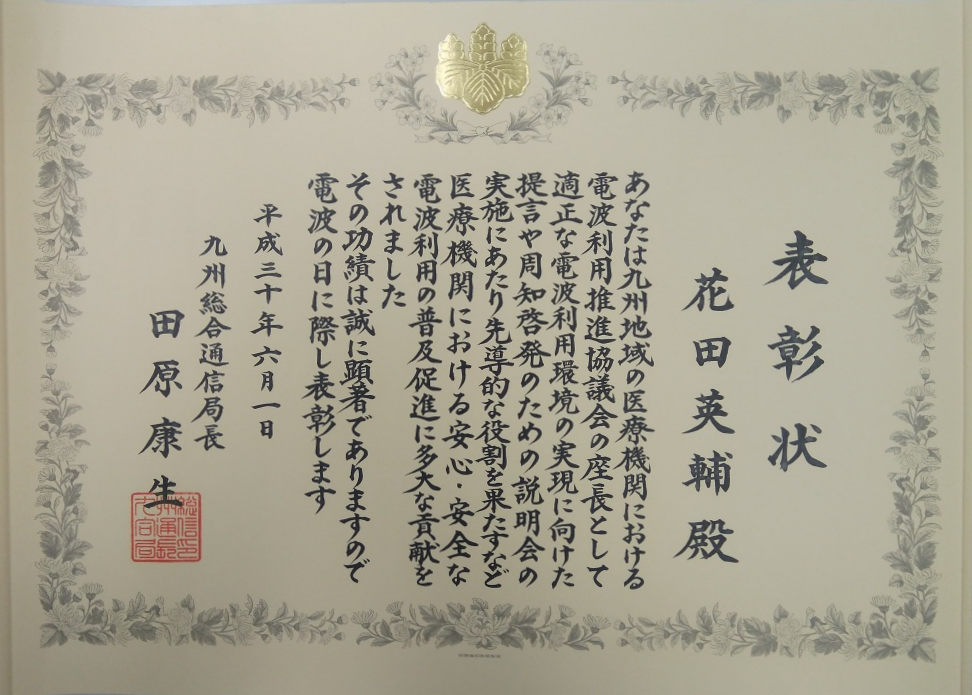 表彰状
花田英輔殿
あなたは九州地域の医療機関における
電波利用推進協議会の座長として
適正な電波利用環境の実現に向けた
提言や周知啓発のための説明会の
実施にあたり先導的な役割を果たすなど
医療機関における安心・安全な
電波利用の普及促進に多大な貢献を
されました
その功績は誠に顕著でありますので
電波の日に際し表彰します
平成三十年六月一日
九州総合通信局長
田原康生